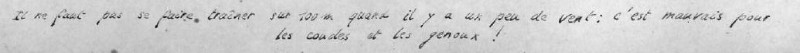 Il ne faut pas se faire traîner sur 100 m quand il y a un peu de vent : c'est mauvais pour
les coudes et les genoux !